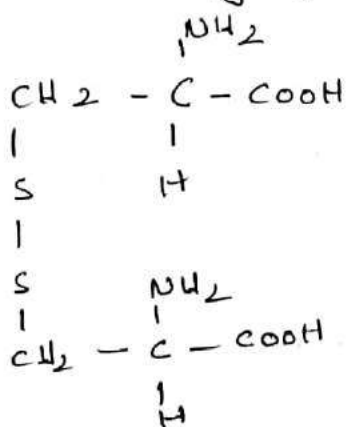 NH2
CH2 - C - COOH
| |
S H
|
S NH2
| |
CH2 - C - COOH
|
H